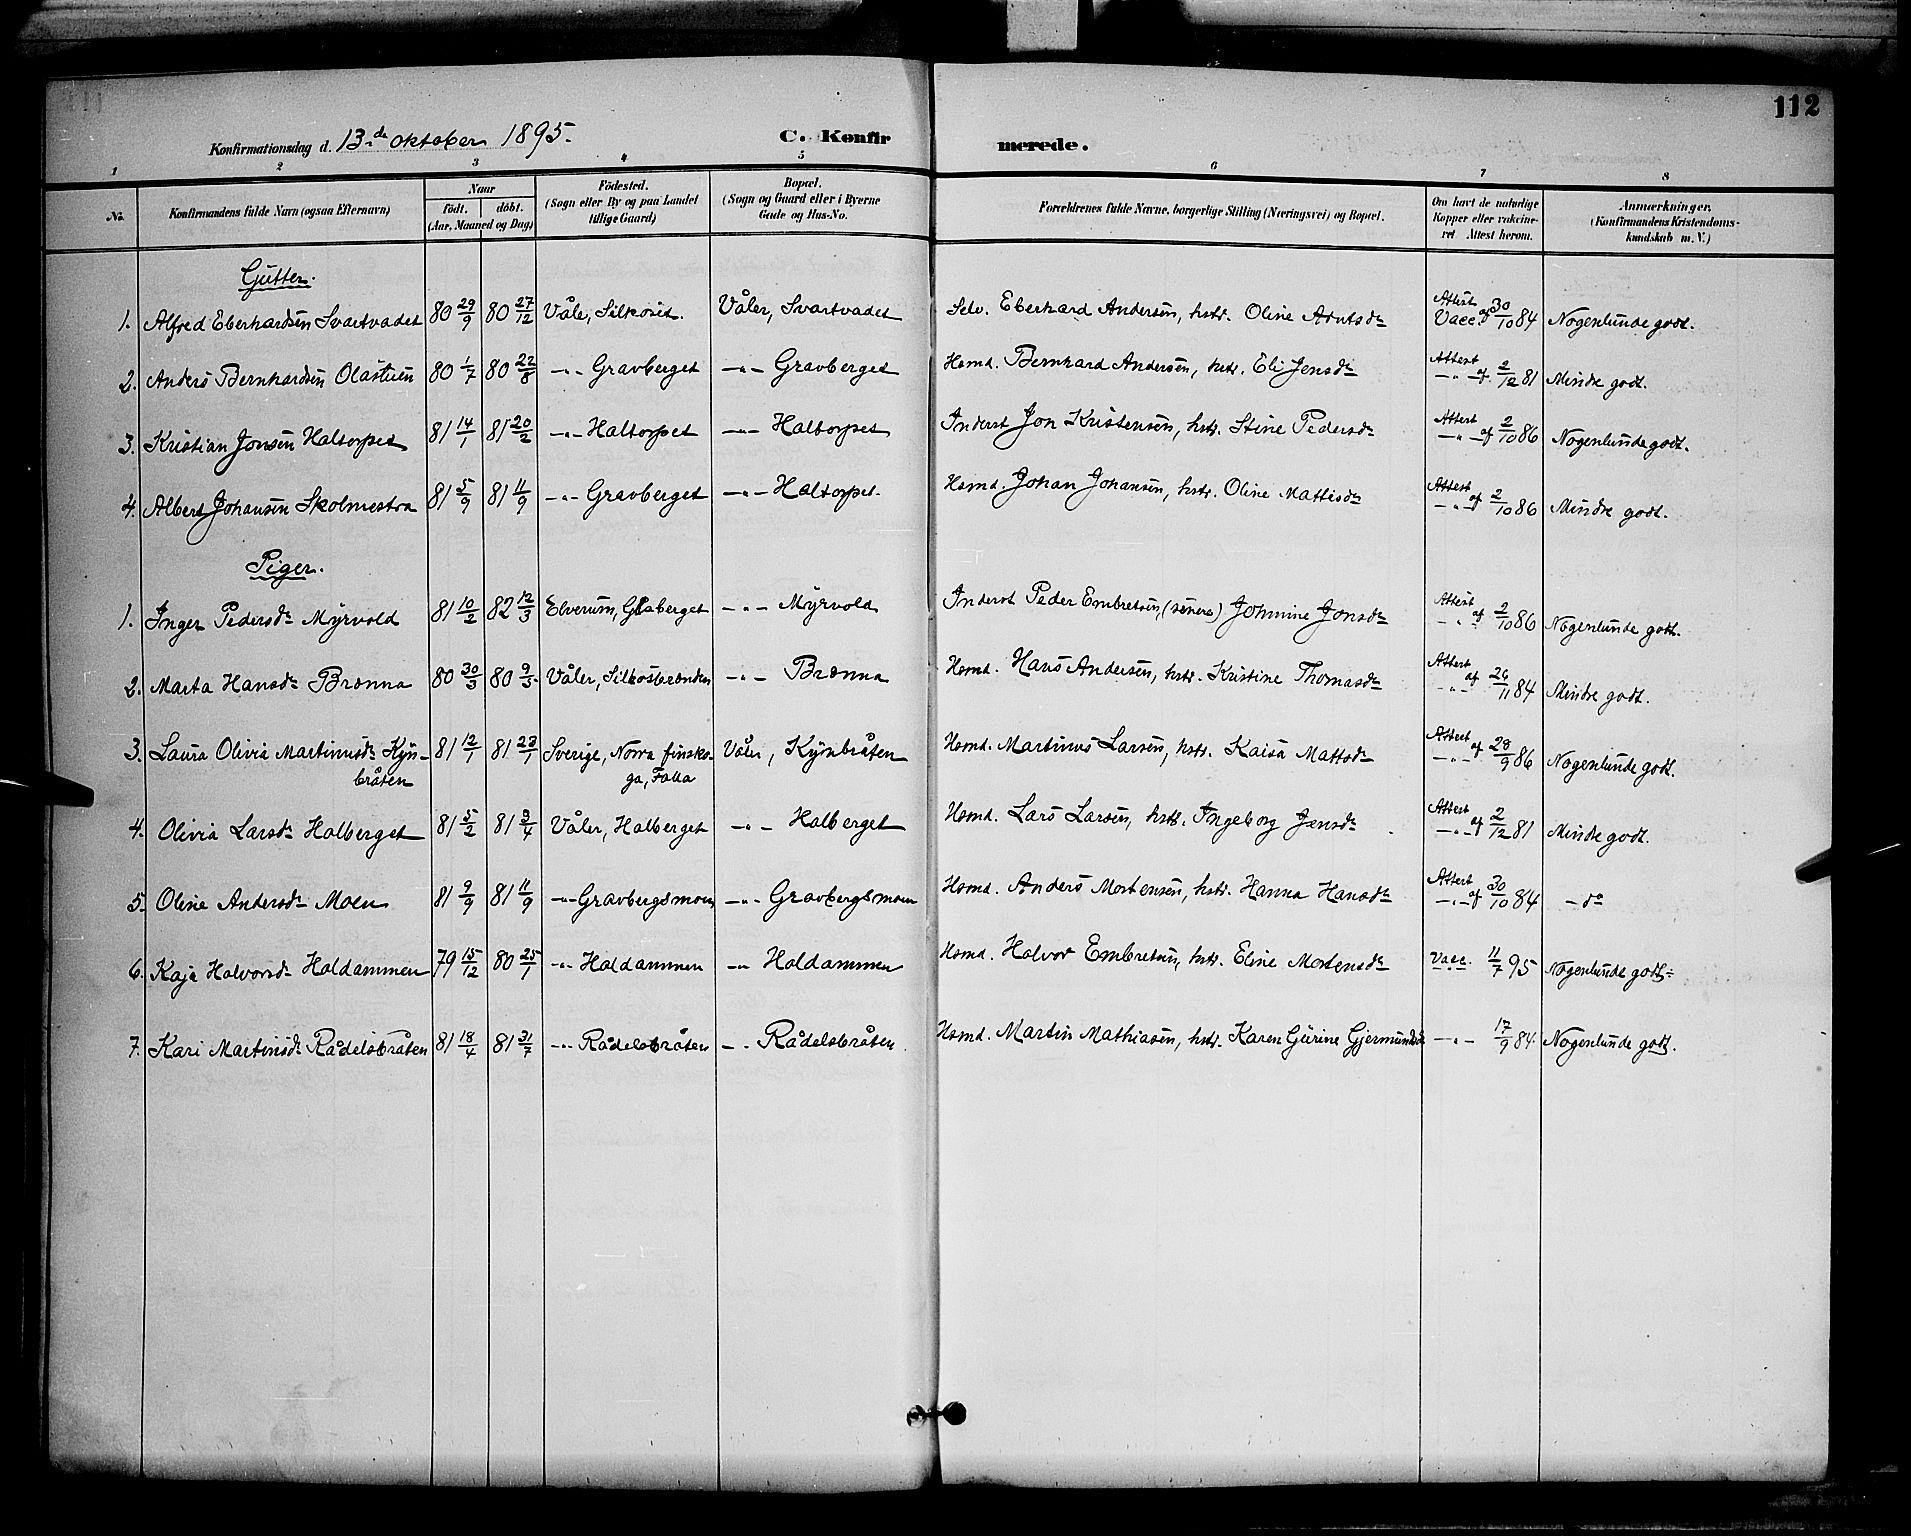 112
Konfirmationsdag d. 13de oktober 1895.
C. Konfirmerede.
1 2 3 4 5 6 7 8
No. | Konfirmandens fulde Navn (ogsaa Efternavn) | Naar födt. döbt. (Aar, Maaned og Dag) | Födested. (Sogn eller By og paa Landet tillige Gaard) | Bopæl. (Sogn og Gaard eller i Byerne Gade og Hus-No. | Forældrenes fulde Navne, borgerlige Stilling (Næringsvei) og Bopæl. | Om havt de naturlige Kopper eller vakcineret Attest herom. | Anmærkninger. (Konfirmandens Kristendomskundskab m. V.)
Gutter.
1. Alfred Eberhardsen Svartvadet | 80 29/9 | 80 27/12 | Våle, Silkoset. | Våler, Svartvadet | Selv. Eberhard Andersen, hstr. Oline Arntsdr | Attest Vacc. af 30/10 84 | Nogenlunde godt.
2. Anders Bernhardsen Olastuen | 80 1/7 | 80 22/8 | -"- Gravberget | -"- Gravberget | Hsmd. Bernhard Andersen, hstr. Eli Jensdr | Attest -"- af 2/12 81 | Mindre godt.
3. Kristian Jonsen Haltorpet | 81 14/1 | 81 20/2 | -"- Haltorpet | -"- Haltorpet | Inderst Jon Kristensen, hstr. Stine Pedersdr | Attest -"- af 2/10 86 | Nogenlunde godt.
4. Albert Johansen Skolmestra | 81 5/9 | 81 11/9 | -"- Gravberget | -"- Haltorpet. | Hsmd. Johan Johansen, hstr. Oline Mattisdr | Attest -"- af 2/10 86 | Mindre godt.
Piger.
1. Inger Pedersdr Myrvold | 81 10/2 | 82 12/3 | Elverum, Glaberget | -"- Myrvold | Inderst Peder Embretsen, (senere) Johnine Jonsdr | Attest -"- af 2/10 86 | Nogenlunde godt.
2. Marta Hansdr Brænna | 80 30/3 | 80 9/5. | Våler, Silkosbrænden | -"- Brænna | Hsmd. Hans Andersen, hstr. Kristine Thomasdr | Attest -"- af 26/11 84 | Mindre godt.
3. Laura Olivia Martinusdr Kynbråten | 81 12/1 | 81 23/1 | Sverige, Norra finskoga, Falla | Våler, Kynbråten | Hsmd. Martinus Larsen, hstr. Kaisa Mattsdr | Attest -"- af 28/9 86 | Nogenlunde godt.
4. Olivia Larsdr Halberget | 81 5/2 | 81 3/4 | Våler, Halberget | -"- Halberget | Hsmd. Lars Larsen, hstr. Ingeborg Jensdr | Attest -"- af 2/12 81 | Mindre godt.
5. Oline Andersdr Moen | 81 9/9 | 81 11/9 | -"- Gravbergsmoen | -"- Gravbergsmoen | Hsmd. Anders Mortensen, hstr. Hanna Hansdr | Attest -"- af 30/10 84 | - do
6. Kaja Halvorsdr Haldammen | 79 15/12 | 80 25/1 | -"- Haldammen | -"- Haldammen | Hsmd. Halvor Embretsen, hstr. Eline Mortensdr | Vacc. 11/7 95 | Nogenlunde godt.
7. Kari Martinsdr Rådelsbråten | 81 18/4 | 81 31/7 | -"- Rådelsbråten | -"- Rådelsbråten | Hsmd. Martin Mathiasen, hstr. Karen Gurine Gjermundsdr | -"- 17/9 84. | Nogenlunde godt.